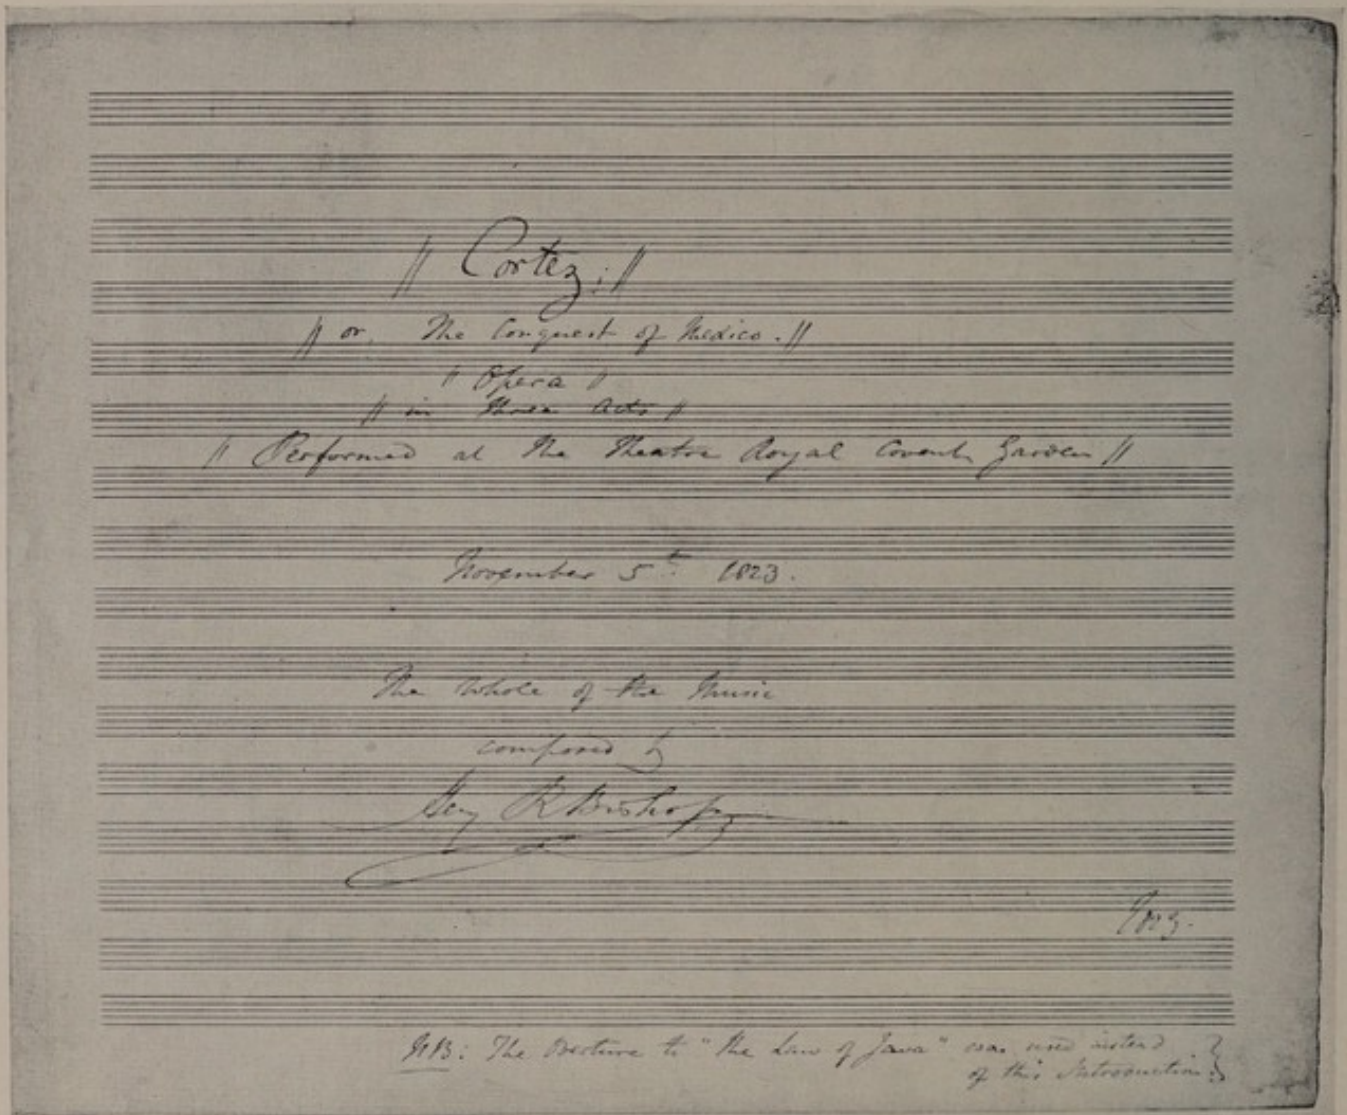 // Cortez; //
// or, The Conquest of Mexico. //
" Opera "
// in Three Acts //
// Performed at The Theatre Royal Covent Garden //
November 5th. 1823.
The Whole of the Music
composed by
Heny R Bishop
1823.
NB: The Overture to "the Law of Java" was used instead
of this Introduction.